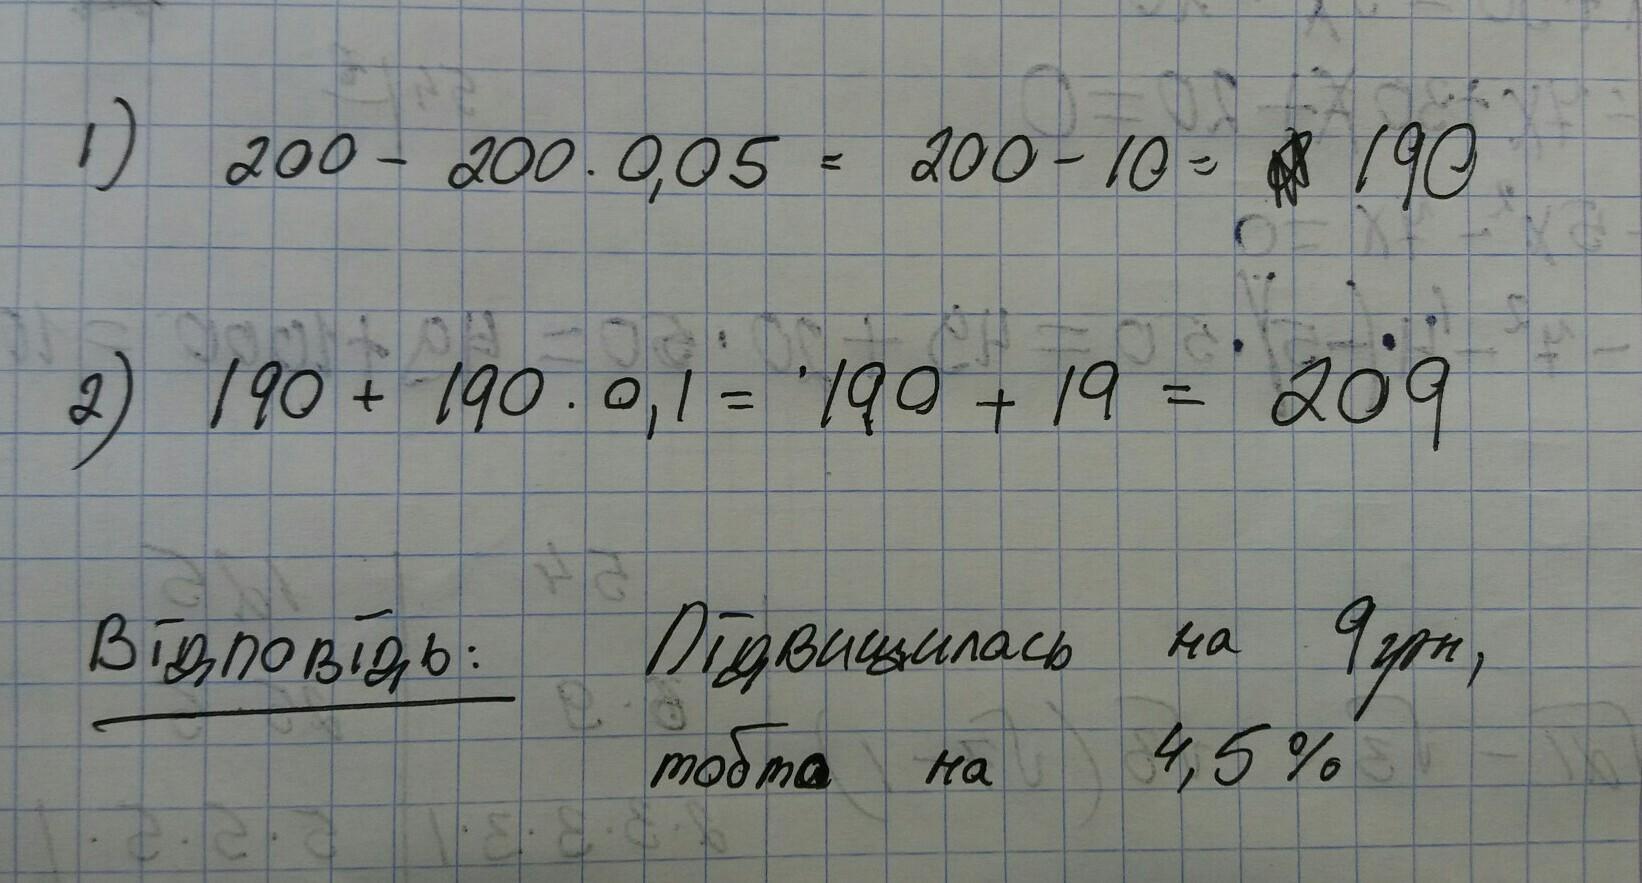 1) 200 - 200 · 0,05 = 200 - 10 = 190
2) 190 + 190 · 0,1 = 190 + 19 = 209
Відповідь: Підвищилась на 9грн,
тобто на 4,5%